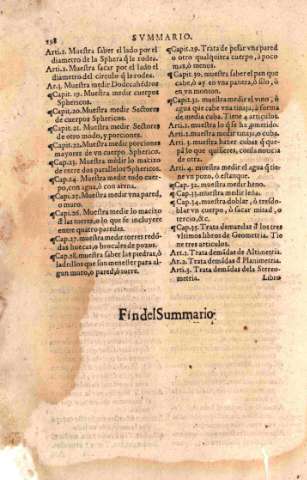 238 SVMMARIO.
Arti.2. Muestra saber el lado por el
diametro de la Sphera q̃ le rodea.
Arti.2. Muestra sacar por el lado el
diametro del circulo q̃ le rodea.
Ar.3. Muestra medir Dodecahedros
¶Cap.19. Muestra medir cuerpos
Sphericos.
¶Cap.20. Muestra medir Sectores
de cuerpos Sphericos.
¶Cap.21. Muestra medir Sectores
de otro modo, y porciones.
¶Cap.22. Muestra medir porciones
mayores de vn cuerpo Spherico.
¶Cap.23. Muestra medir lo macizo
de entre dos paralelos Sphericos.
¶Cap.24. Muestra medir todo cuer-
po, con agua, ó con arena.
¶Cap.25. Muestra medir vna pared,
o muro.
¶Cap.26. Muestra medir lo macizo
d̃ las torres, o lo que se incluyere
entre quatro paredes.
¶Cap.27. muestra medir torres redõ-
das huecas, o brocales de pozos.
¶Cap.28. muestra saber las piedras, ó
ladrillos que son menester para al-
gun muro, o pared, ó suelo.
¶Capit.29. Trata de pesar vna pared
o otro qualquiera cuerpo, á poco
mas, ó menos.
¶Capit. 30. muestra saber el pan que
cabe, ó ay en vna panera, ó silo, ó
en vn monton.
¶Capit.31. muestra medir el vino, ó
agua que cabe vna tinaja, á forma
de media cuba. Tiene 4 articulos.
Artic.1. muestra lo q̃ se ha prometido.
Arti.2. muestra medir tinajas, o cubas.
Artic. 3. muestra hazer cubas q̃ quepã
lo que quisieres, con la noticia
de otra.
Arti. 4. muestra medir el agua q̃ tie-
ne vn pozo, ó estanque.
¶Cap. 32. muestra medir heno.
¶Cap.33. muestra medir leña.
¶Cap.34. muestra doblar, ó tresdo-
blar vn cuerpo, ó sacar mitad, o
tercio, &c.
¶Cap.35. Trata demandas d̃ los tres
vltimos libros de Geometria. Tie
ne tres articulos.
Ar.1. Trata demãdas de Altimetria.
Art.2. Trata demãdas d̃ Planimetria.
Art.3. Trata demãdas dela Stereo-
metria. Libro
Fin del Summario